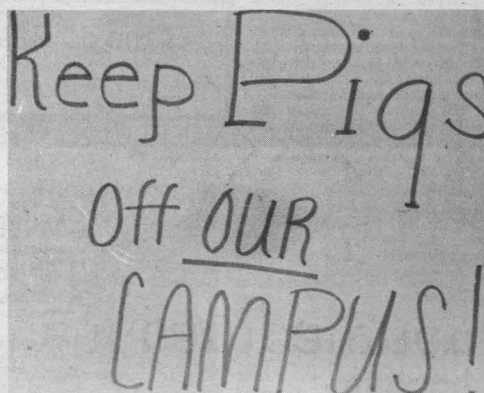 Keep Pigs
Off OUR
CAMPUS!